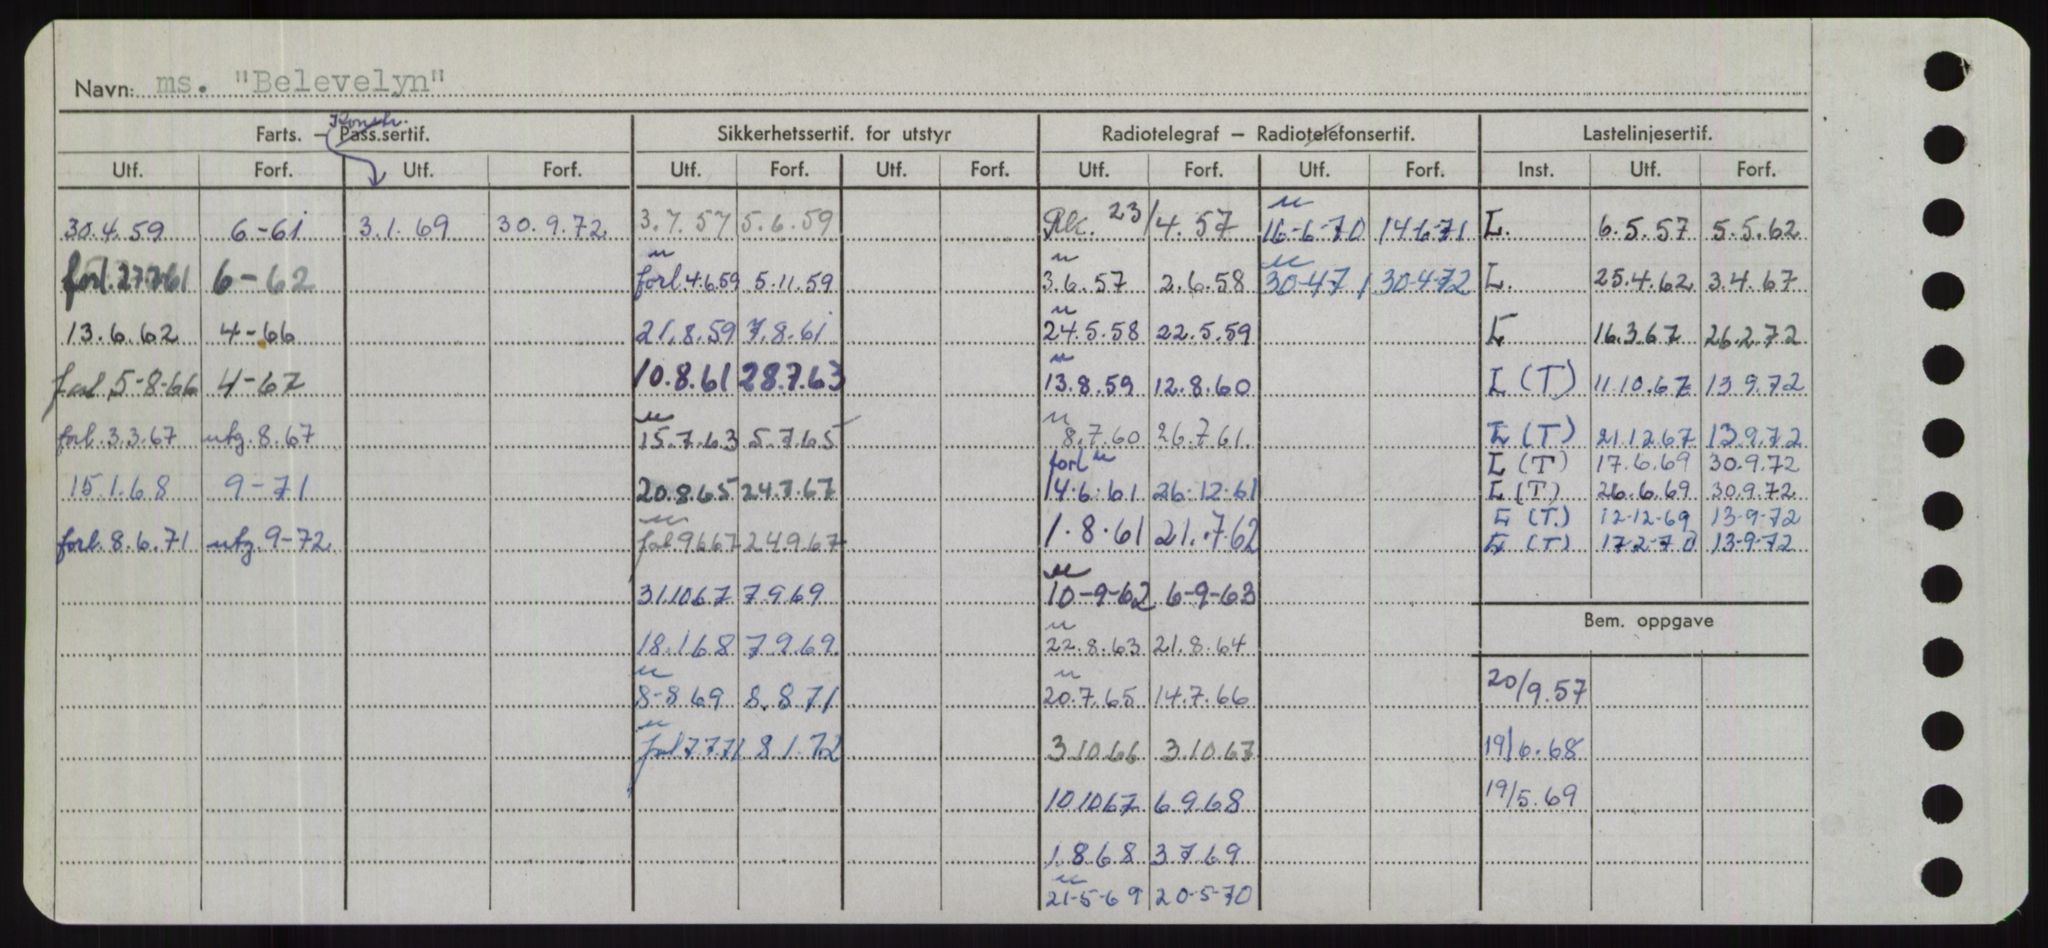 Navn: ms. "Belevelyn"
Konstr.
Farts. – Pass.sertif. Sikkerhetssertif. for utstyr Radiotelegraf – Radiotelefonsertif. Lastelinjesertif.
Utf. Forf. Utf. Forf. Utf. Forf. Utf. Forf. Utf. Forf. Utf. Forf. Inst. Utf. Forf.
30.4.59 6-61 3.1.69 30.9.72 3.7.57 5.6.59 23/4.57 16-6-70 14.6.71 L. 6.5.57 5.5.62
forl. 27.7.61 6-62 forl. 4.6.59 5.11.59 3.6.57 2.6.58 30-4-71 30-4-72 L. 25.4.62 3.4.67
13.6.62 4-66 21.8.59 7.8.61 24.5.58 22.5.59 L 16.3.67 26.2.72
forl 5-8-66 4-67 10.8.61 28.7.63 13.8.59 12.8.60 L (T) 11.10.67 13.9.72
forl. 3.3.67 utg. 8.67 15.7.63 5.7.65 8.7.60 26.7.61. L (T) 21.12.67 13.9.72
L (T) 17.6.69 30.9.72
15.1.68 9-71 20.8.65 24.7.67 forl 14.6.61 26.12.61 L (T) 26.6.69 30.9.72
L (T.) 12-12-69 13-9-72
forl. 8.6.71 utg. 9-72 forl 9.6.67 24.9.67 1.8.61 21.7.62 L (T) 17-2-70 13-9-72
31.10.67 7.9.69 10-9-62 6-9-63
Bem. oppgave
18.1.68 7.9.69. 22.8.63 21.8.64
8-8.69 8.8.71 20.7.65 14.7.66 20/9.57
forl 7.7.71 8.1.72 3.10.66 3.10.67 19/6.68
10.10.67 6.9.68 19/5.69
1.8.68 3.7.69
21-5-69 20-5-70